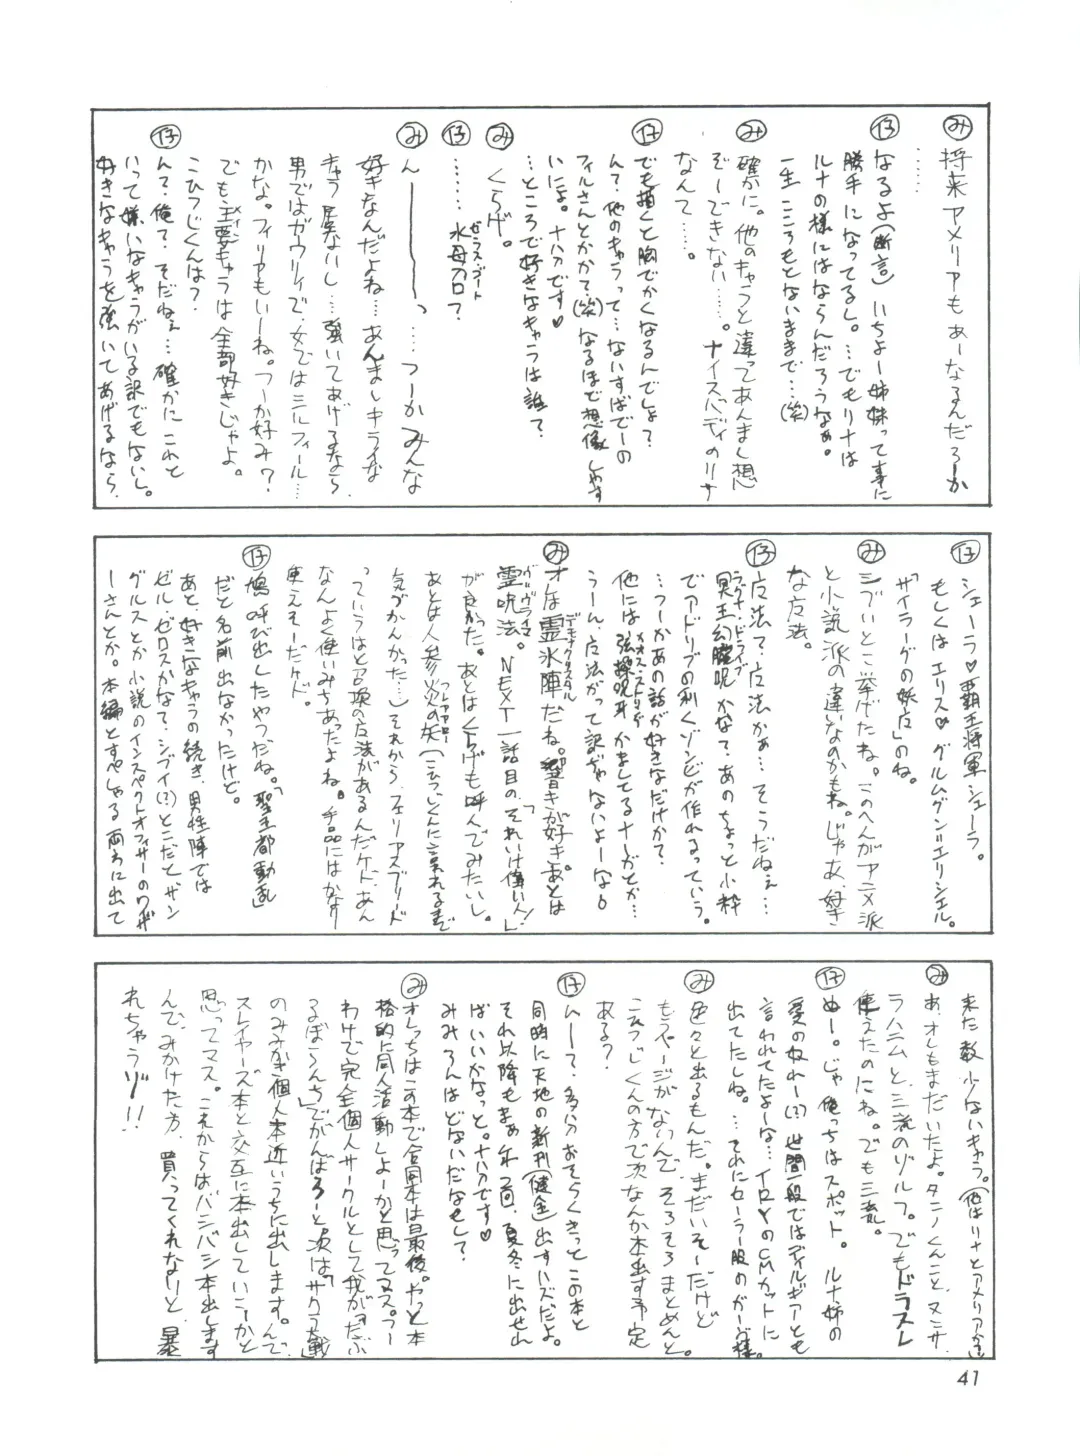 み 将来アメリアもあーなるんだろーか
……
仔 なるよ(断言) いちよー姉妹って事に
勝手になってるし。…でもリナは
ルナの様にはならんだろうなぁ。
一生こころもとないままで…(笑)
み 確かに。他のキャラと違ってあんまし想
ぞーできない……。ナイスバディのリナ
なんて……。
仔 でも描くと胸でかくなるんでしょ?
んで、他のキャラって…ないすばでーの
フィルさんとかかて(笑)なるほど想像しやす
いによ。ナハハです♥
…ところで好きなキャラは誰?
み くらげ。
仔 ……水母刀口?
み ん―――っ…つーかみんな
好きなんだよね…あんましキライな
きゃら居ないし…強いてあげるなら
男ではガウリイで、女ではミルフィール…
かな。フィリアもいーね。つーか好み?
でも主要キャラは全部好きじゃよ。
こひつじくんは?
仔 んで、俺?そだねぇ…確かにこれと
いって嫌いなキャラがいる訳でもないし。
好きなキャラを強いてあげるなら、
仔 シェーラ♥覇王将軍シェーラ。
もしくはエリス♥グルムグン=エリシエル。
「サイラーグの妖女」のね。
み シブいとこ挙げたね。このへんがアニメ派
と小説派の違いなのかもね。じゃあ、好き
な呪法。
仔 呪法?呪法かぁ…そうだねぇ…
冥王幻朧呪かなて、あのちょっと小粋
でアドリブの利くゾンビが作れるっていう。
…つーかあの話が好きなだけか?
他には強操呪牙かましてるナーガとか…
うーん、呪法がって訳ぢゃないよーな。
み オレは霊氷陣だね。響きが好き。あとは
霊呪法。NEXT一話目の「それいけ偉い人!」
が良かった。あとはくらげも呼んでみたいし。
あとは人参炎の矢(こひつじくんに言われるまで
気づかんかった…)それからフェリアスブリード
っていうはと召喚の呪法があるんだケド、あん
なんよく使いみちあったよね。手品にはかなり
使えそーだケド。
仔 鳩呼び出したやつだね。「聖王都動乱」
だと名前出なかったけど。
あと、好きなキャラの続き、男性陣では
ゼル・ゼロスかな?シブイ(?)とこだとザン
グルスとか小説のインスペクトオフィサーのワイザ
ーさんとか。本編とすぺしゃる両方に出て
来た数少ないキャラ。(他はリナとアメリアか?)
み あ、オレもまだいたよ。タニノくんこと、ヌンサ。
ラハニムと、三流のゾルフ。でもドラスレ
使えたのにね。でも三流。
仔 ぬー。じゃ俺っちはスポット。ルナ姉の
愛の奴れー(?)世間一般ではディルギアーとも
言われてたよーな…イロイロCMカットに
出てたしね。…てれにセーラー服のガーヴ様。
み 色々と出るもんだ。まだいそーだけど
もうページがなったんで、そろそろまとめんと。
こひつじくんの方で次なんか本出す予定
ある?
仔 んー?多分おそらくきっとこの本と
同時に天地の新刊(健全)出すハズだよ。
それ以降もまぁ年2回、夏冬に出せれ
ばいいかなっと。ナハハです♥
みみろんはどないだなもし?
み オレっちはこの本で合同本は最後。やっと本
格的に同人活動しよーかと思ってマス。つー
わけで完全個人サークルとして我が「だぶ
るぼーらんち」でがんばろーと。次は「サクラ大戦」
のみみかき個人本近いうちに出します。んで、
スレイヤーズ本と交互に本出していこーかと
思ってマス。これからはバシバシ本出します
んで、みかけた方、買ってくれないと、暴
れちゃうゾ!!
41